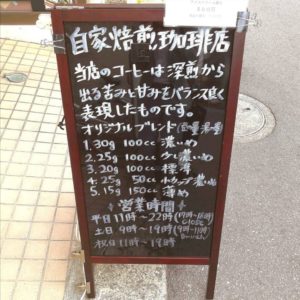 自家焙煎珈琲店
当店のコーヒーは深煎から
出る苦みと甘みをバランス良く
表現したものです。
オリジナルブレンド(豆量湯量)
1.30g 100cc 濃いめ
2.25g 100cc 少し濃いめ
3.20g 100cc 標準
4.25g 50cc 小カップ濃い味
5.15g 150cc 薄め
営業時間
平日 11時〜22時 (17時〜18時)
close
土日 9時〜19時 (9時〜11時)
祝日 11時〜19時